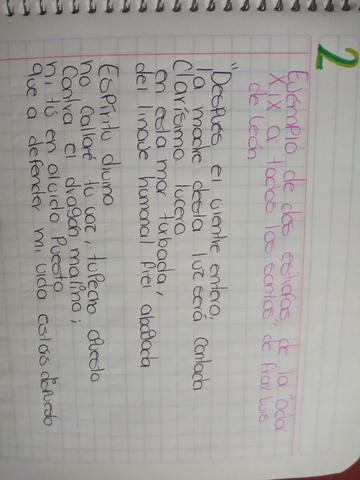 2
Ejemplo de dos estrofas, de la "Oda
XIX a todos los santos, de Fray Luis
de León
"Despues el vientre entero,
la madre desta luz será cantada
Clarísimo lucero
en esta mar turbada,
del linaje humanal fiel abogada
Espíritu divino
no callaré tu voz, tu pecho opuesto
Contra el dragon malino;
ni tú en olvido puesto
que a defender mi vida estais dispuesto